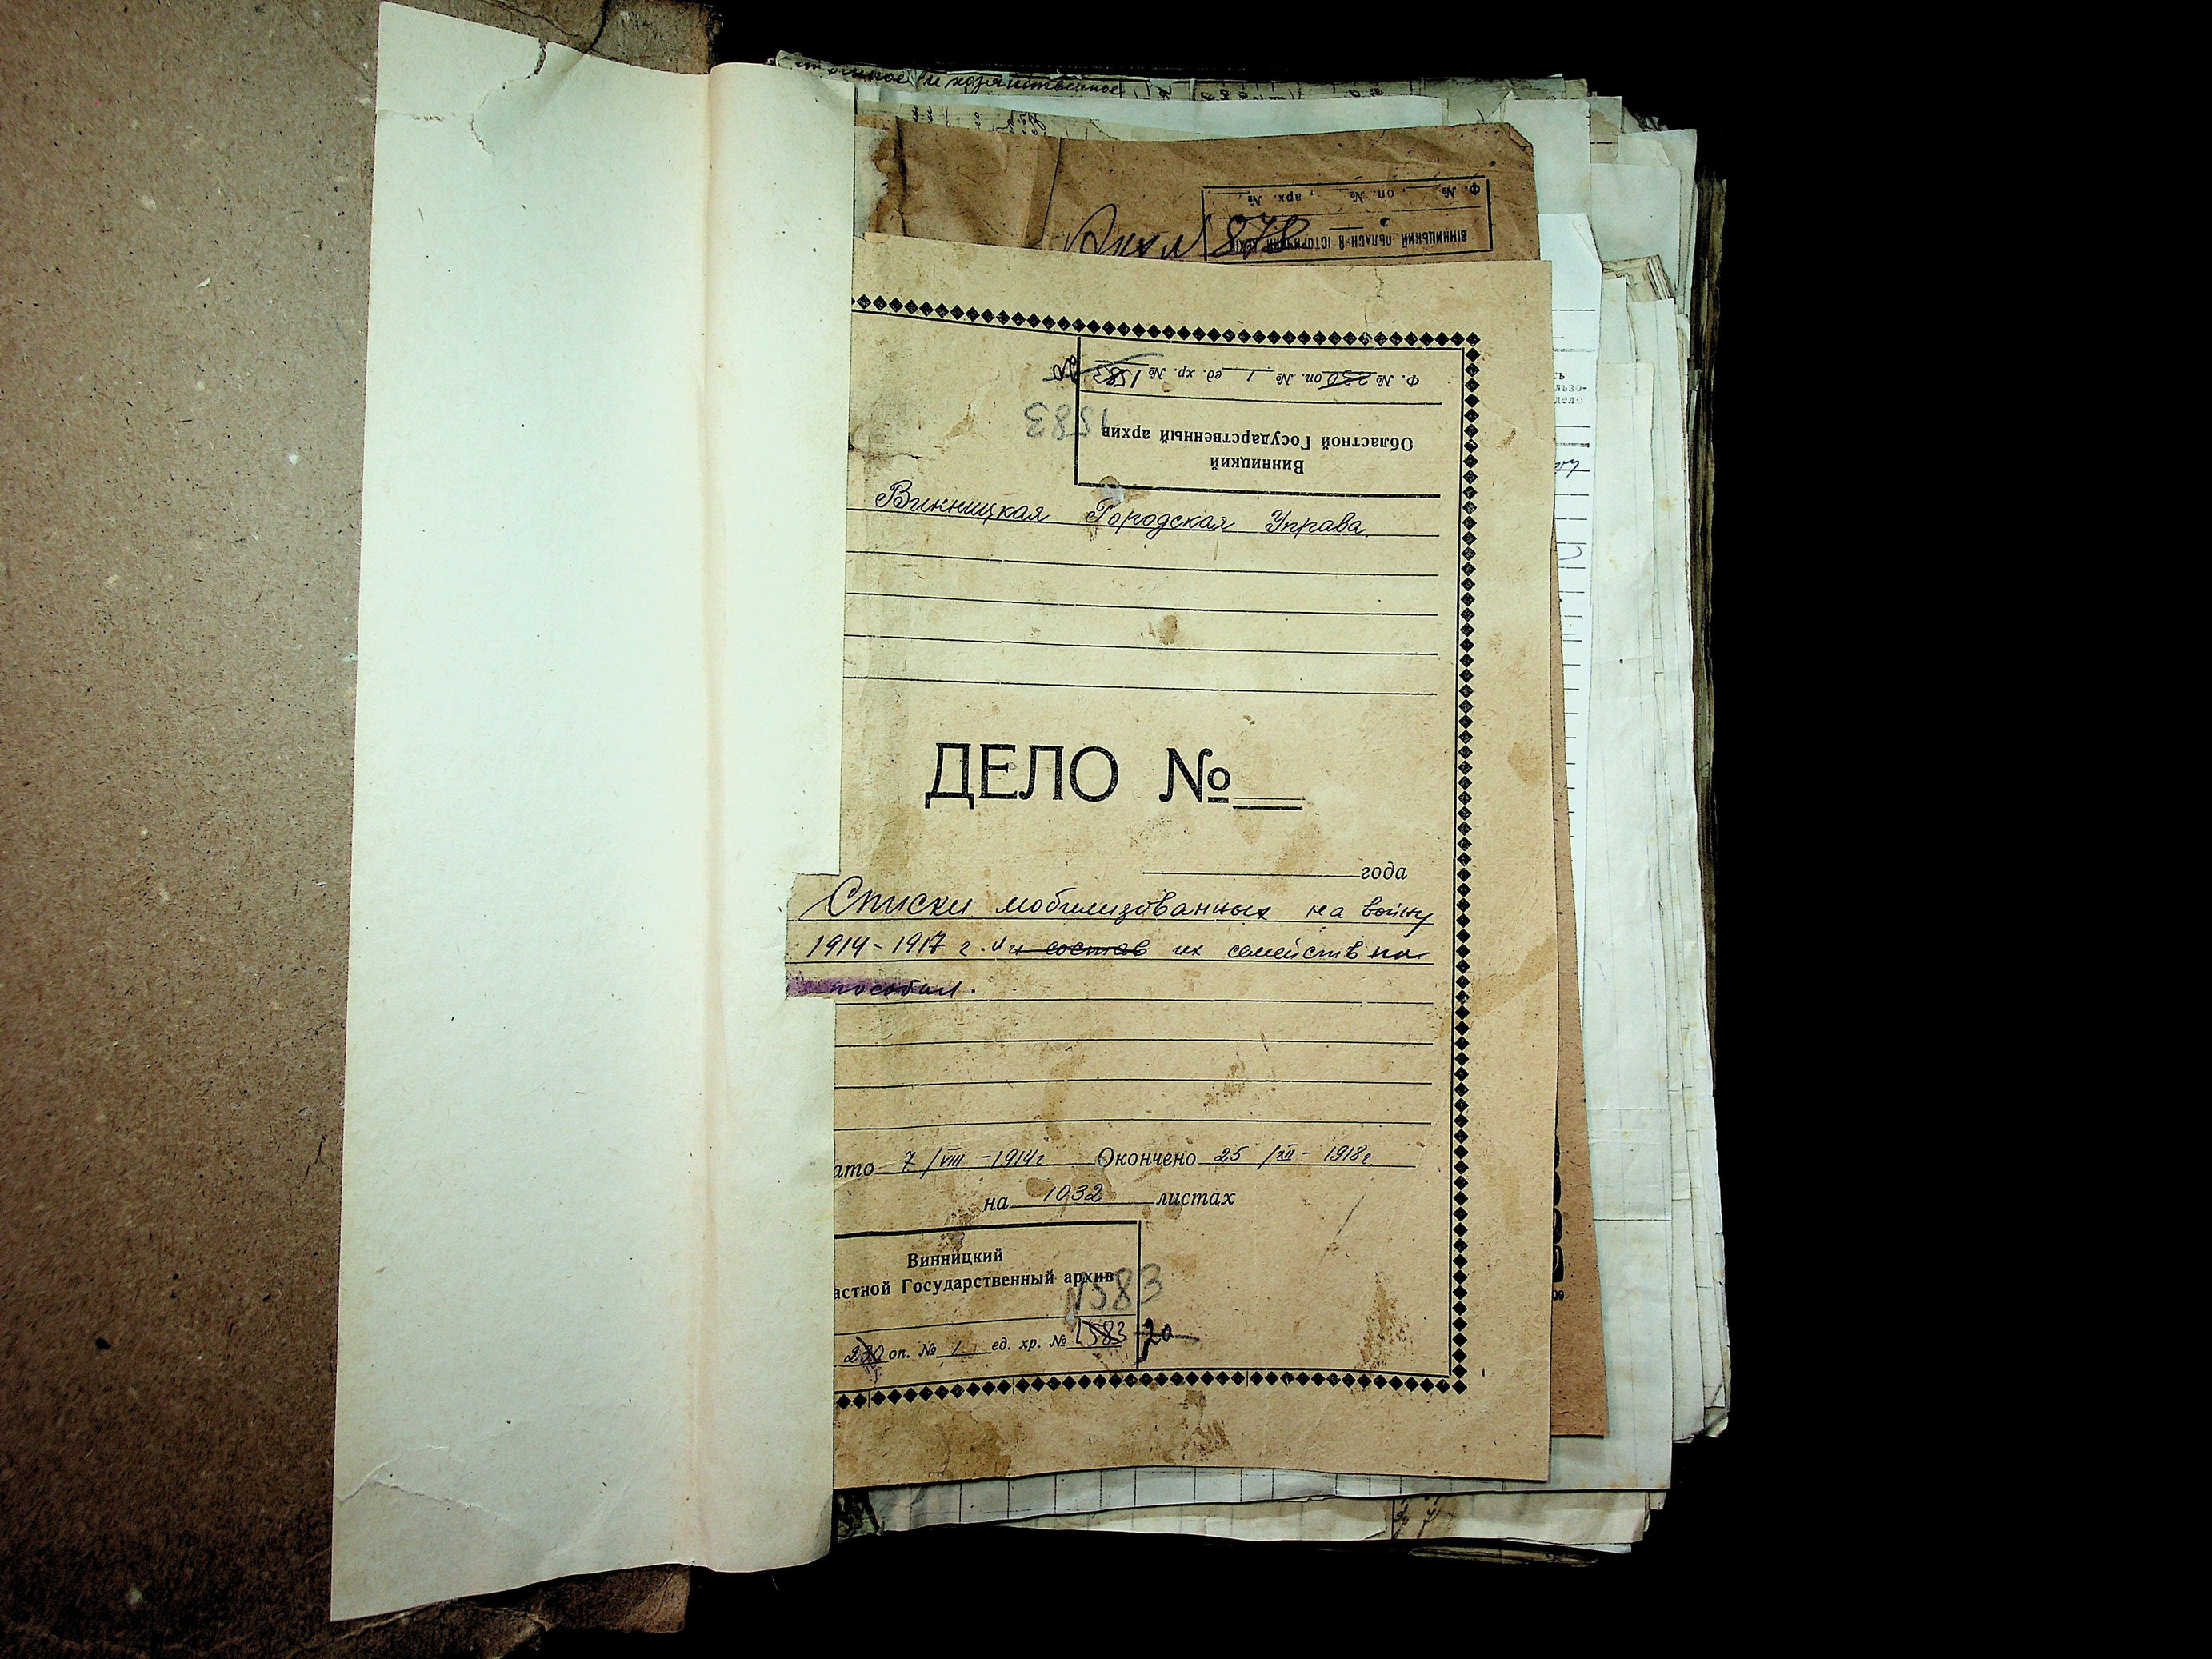 и хозяйственное
878
Ф. № , оп. № , арх. №
ВІННИЦЬКИЙ ІСТОРИЧНИЙ
Ф. № 230 оп. № 1 ед. хр. № 1583
1583
Винницкий
Областной Государственный архив
Винницкая Городская Управа.
ДЕЛО №
года
Списки мобилизованных на войну
1914-1917 г. и состав их семейств на
пособия.
ато 7/VIII-1914г Окончено 25/XII-1918г.
на 1032 листах
Винницкий
астной Государственный архив
1583
230 оп. № 1 ед. хр. № 1583 20